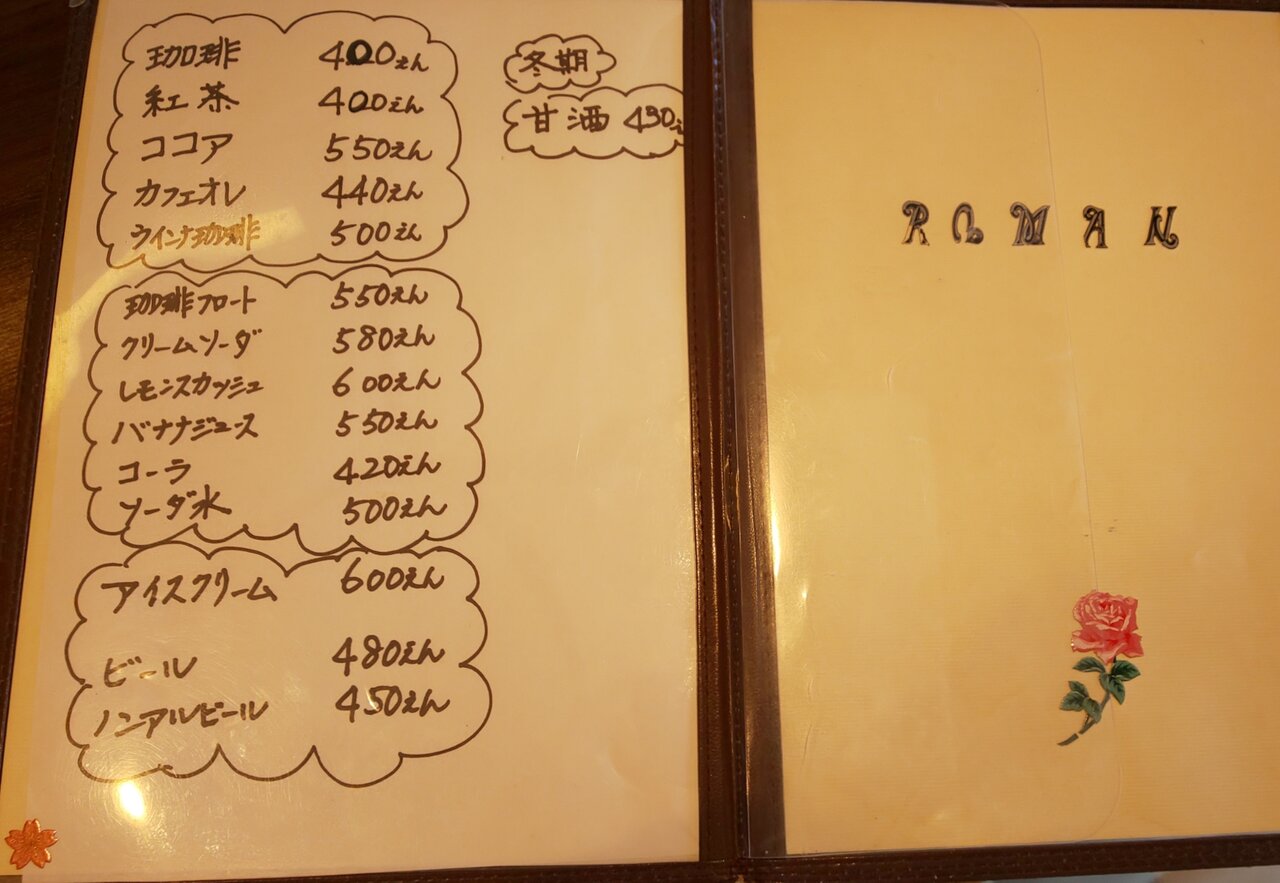 珈琲 400えん
紅茶 400えん
ココア 550えん
カフェオレ 440えん
ウインナ珈琲 500えん
珈琲フロート 550えん
クリームソーダ 580えん
レモンスカッシュ 600えん
バナナジュース 550えん
コーラ 420えん
ソーダ水 500えん
アイスクリーム 600えん
ビール 480えん
ノンアルビール 450えん
冬期
甘酒 430え
ROMAN